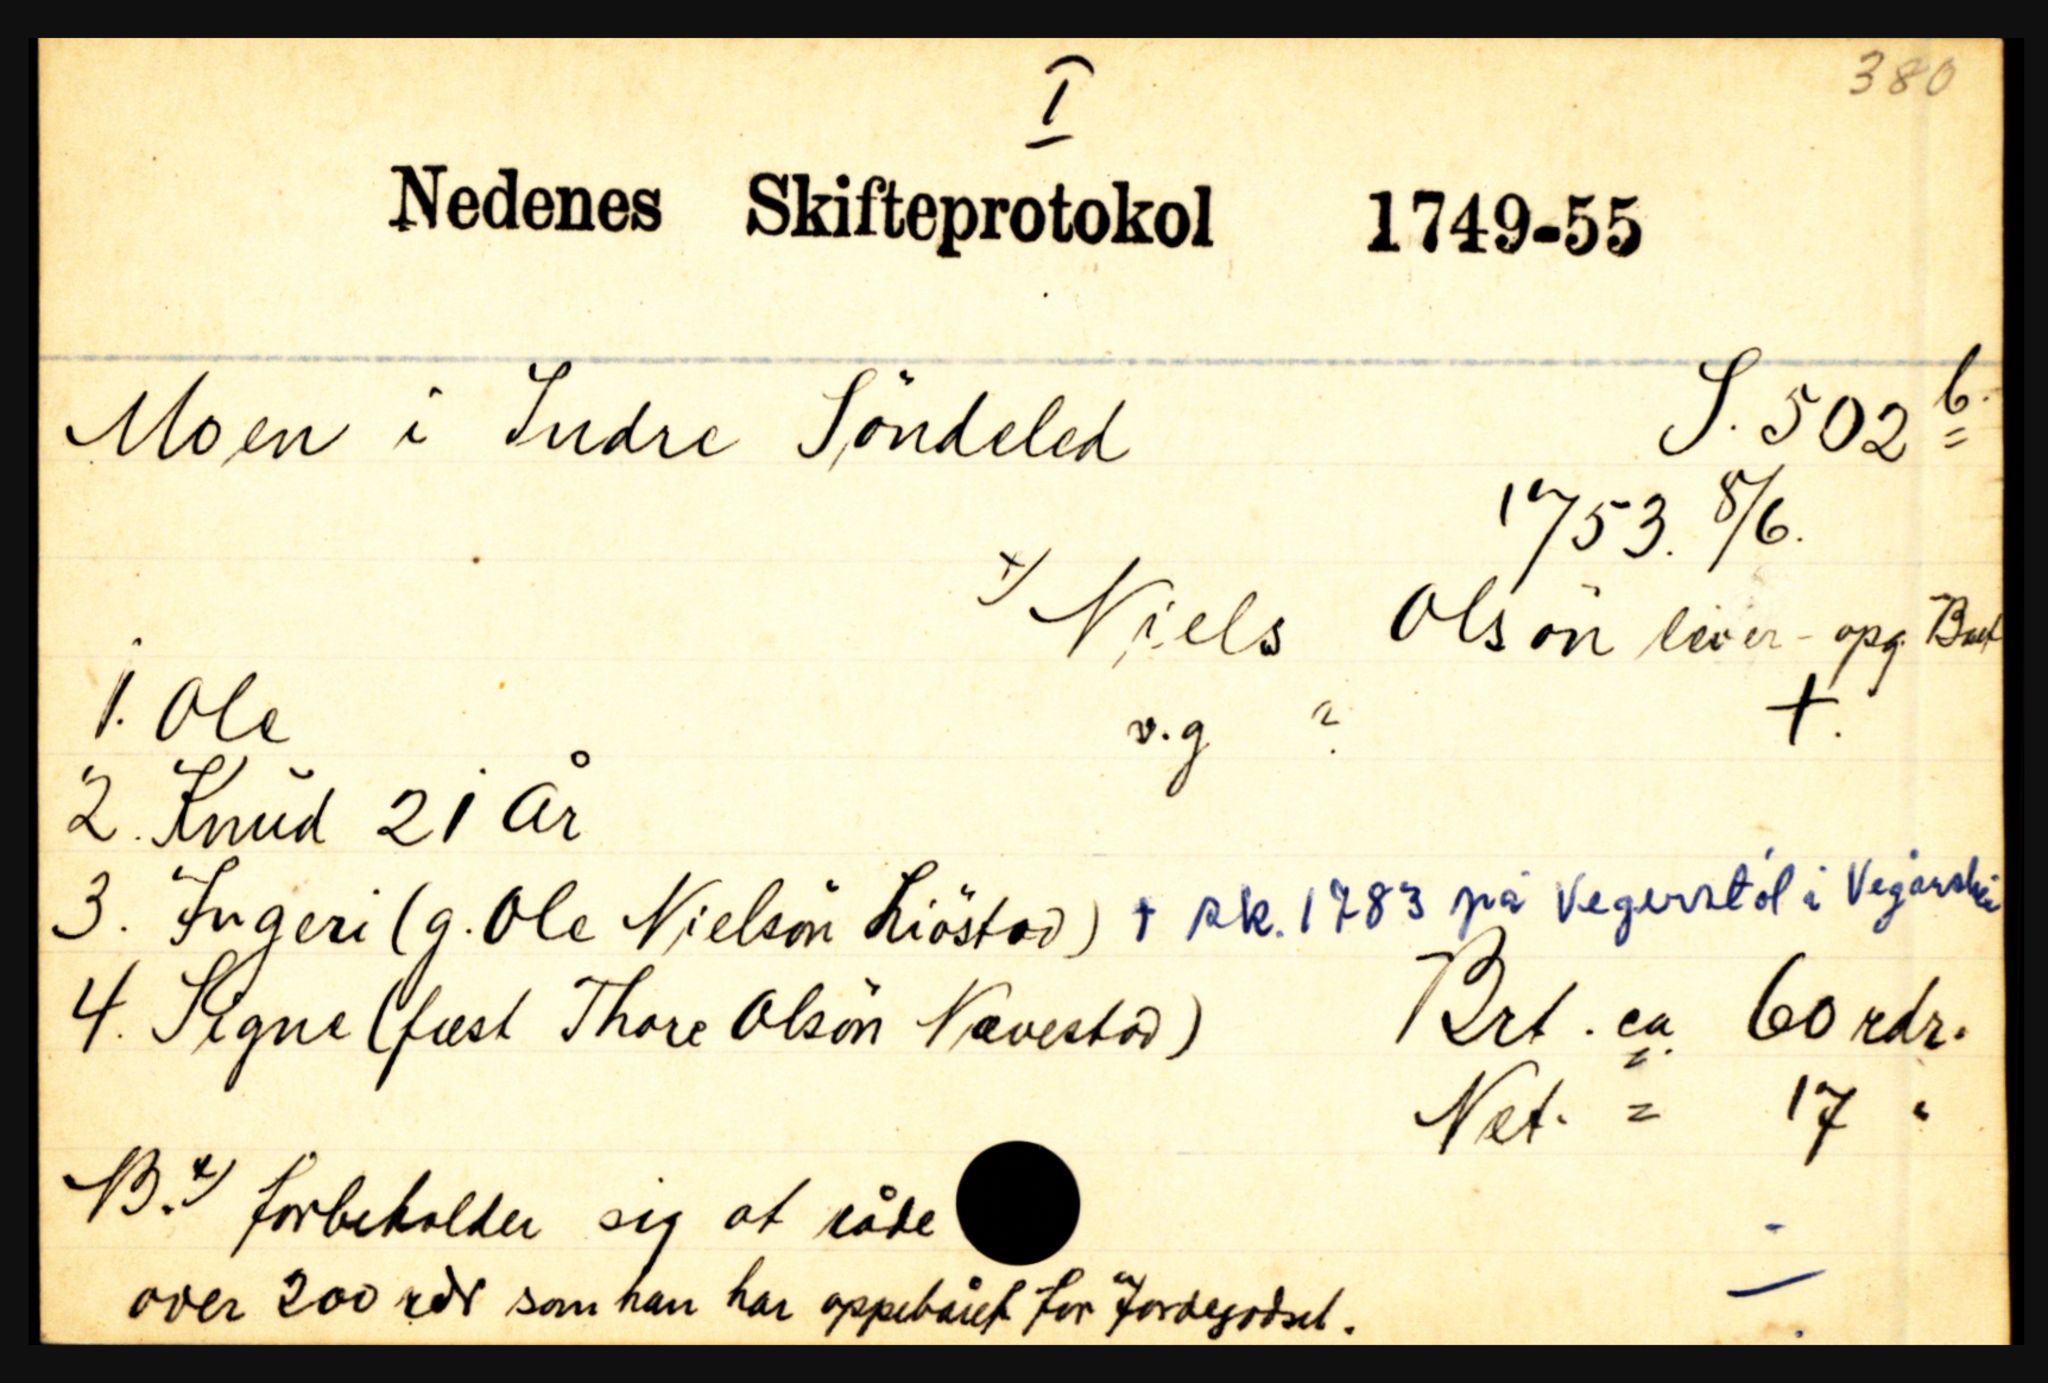 380
I
Nedenes Skifteprotokol 1749-55
Moen i Indre Söndeled S. 502 b.
1753. 8/6.
+) Niels Olsön lever - opg. Boet
1. Ole v.g ? +.
2. Knŭd 21 År
3. Ingeri (g. Ole Nielsön Liöstad) + sk. 1783 på Vegerstøl i Vegårshei
4. Signe (fæst Thore Olsön Nævestad) Brt. ca. 60 rdr.
Net. = 17 "
NB. +) forbeholder sig at råde
over 200 rdr som han har oppebåret for Jordegodset.